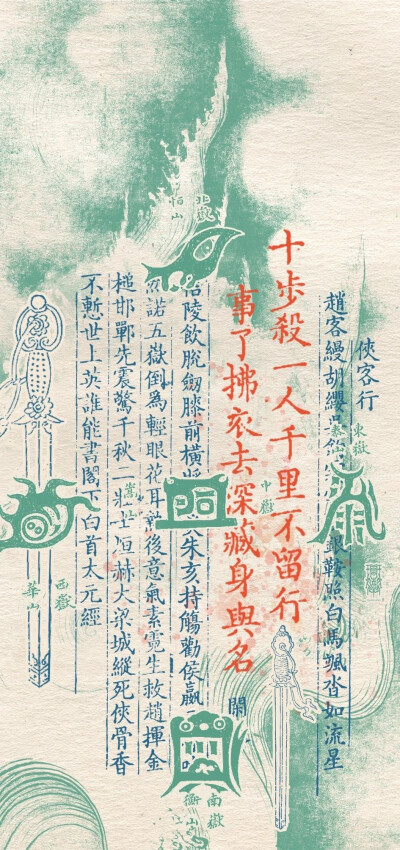 俠客行
趙客縵胡纓銀鞍照白馬颯沓如流星
十步殺一人千里不留行
事了拂衣去深藏身與名
閑
陵飲脫劒膝前橫將朱亥持觴勸侯嬴
諾五嶽倒為輕眼花耳熱後意氣素霓生救趙揮金
槌邯鄲先震驚千秋二壯士烜赫大梁城縱死俠骨香
不慙世上英誰能書閣下白首太元經
東嶽
泰山
中嶽
嵩山
北嶽
恒山
西嶽
華山
南嶽
衡山